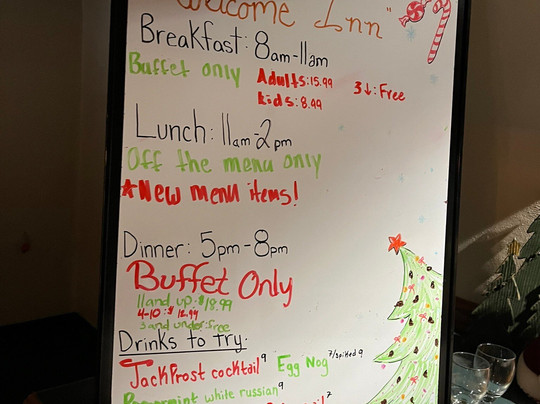 Welcome Inn"
Breakfast: 8am-11am
Buffet only Adults:15.99 3↓: Free
Kids: 8.99
Lunch: 11am-2pm
Off the menu only
*New menu items!
Dinner: 5pm-8pm
Buffet Only
11 and up: $18.99
4-10: $12.99
3 and under: free
Drinks to try:
JackFrost cocktail 9 Egg Nog 7/spiked 9
Peppermint white russian 9